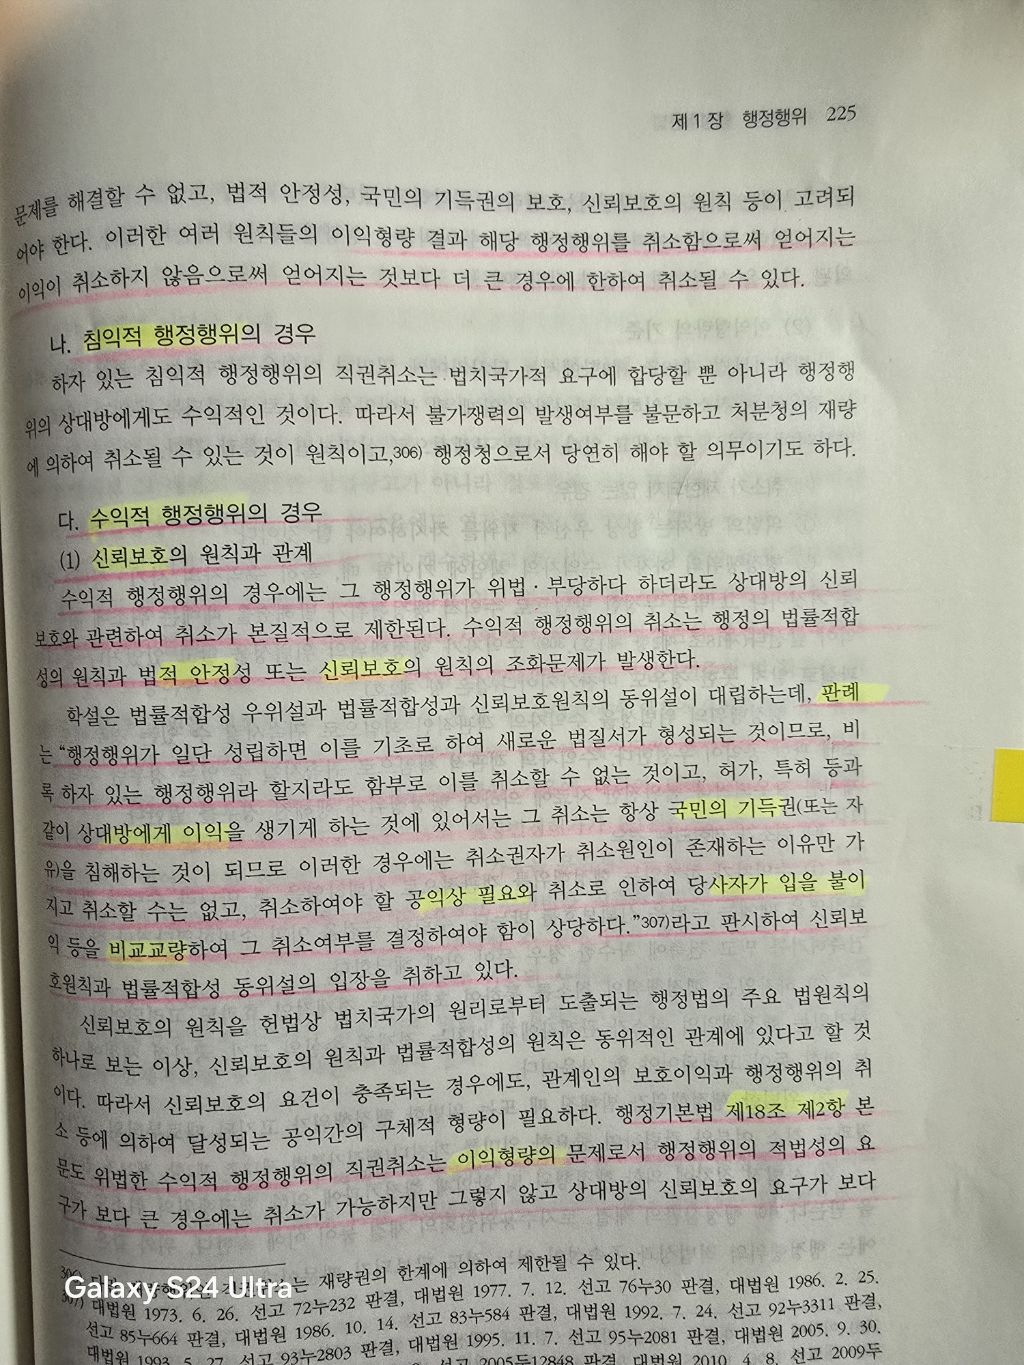 제1장 행정행위 225
문제를 해결할 수 없고, 법적 안정성, 국민의 기득권의 보호, 신뢰보호의 원칙 등이 고려되
어야 한다. 이러한 여러 원칙들의 이익형량 결과 해당 행정행위를 취소함으로써 얻어지는
이익이 취소하지 않음으로써 얻어지는 것보다 더 큰 경우에 한하여 취소될 수 있다.
나. 침익적 행정행위의 경우
하자 있는 침익적 행정행위의 직권취소는 법치국가적 요구에 합당할 뿐 아니라 행정행
위의 상대방에게도 수익적인 것이다. 따라서 불가쟁력의 발생여부를 불문하고 처분청의 재량
에 의하여 취소될 수 있는 것이 원칙이고,306) 행정청으로서 당연히 해야 할 의무이기도 하다.
다. 수익적 행정행위의 경우
(1) 신뢰보호의 원칙과 관계
수익적 행정행위의 경우에는 그 행정행위가 위법·부당하다 하더라도 상대방의 신뢰
보호와 관련하여 취소가 본질적으로 제한된다. 수익적 행정행위의 취소는 행정의 법률적합
성의 원칙과 법적 안정성 또는 신뢰보호의 원칙의 조화문제가 발생한다.
학설은 법률적합성 우위설과 법률적합성과 신뢰보호원칙의 동위설이 대립하는데, 판례
는 “행정행위가 일단 성립하면 이를 기초로 하여 새로운 법질서가 형성되는 것이므로, 비
록 하자 있는 행정행위라 할지라도 함부로 이를 취소할 수 없는 것이고, 허가, 특허 등과
같이 상대방에게 이익을 생기게 하는 것에 있어서는 그 취소는 항상 국민의 기득권(또는 자
유)을 침해하는 것이 되므로 이러한 경우에는 취소권자가 취소원인이 존재하는 이유만 가
지고 취소할 수는 없고, 취소하여야 할 공익상 필요와 취소로 인하여 당사자가 입을 불이
익 등을 비교교량하여 그 취소여부를 결정하여야 함이 상당하다.”307)라고 판시하여 신뢰보
호원칙과 법률적합성 동위설의 입장을 취하고 있다.
신뢰보호의 원칙을 헌법상 법치국가의 원리로부터 도출되는 행정법의 주요 법원칙의
하나로 보는 이상, 신뢰보호의 원칙과 법률적합성의 원칙은 동위적인 관계에 있다고 할 것
이다. 따라서 신뢰보호의 요건이 충족되는 경우에도, 관계인의 보호이익과 행정행위의 취
소 등에 의하여 달성되는 공익간의 구체적 형량이 필요하다. 행정기본법 제18조 제2항 본
문도 위법한 수익적 행정행위의 직권취소는 이익형량의 문제로서 행정행위의 적법성의 요
구가 보다 큰 경우에는 취소가 가능하지만 그렇지 않고 상대방의 신뢰보호의 요구가 보다
306) 는 재량권의 한계에 의하여 제한될 수 있다.
307) 대법원 1973. 6. 26. 선고 72누232 판결, 대법원 1977. 7. 12. 선고 76누30 판결, 대법원 1986. 2. 25.
선고 85누664 판결, 대법원 1986. 10. 14. 선고 83누584 판결, 대법원 1992. 7. 24. 선고 92누3311 판결,
대법원 1993. 5. 27. 선고 93누2803 판결, 대법원 1995. 11. 7. 선고 95누2081 판결, 대법원 2005. 9. 30.
선고 2005두12848 판결, 대법원 2010. 4. 8. 선고 2009두
Galaxy S24 Ultra